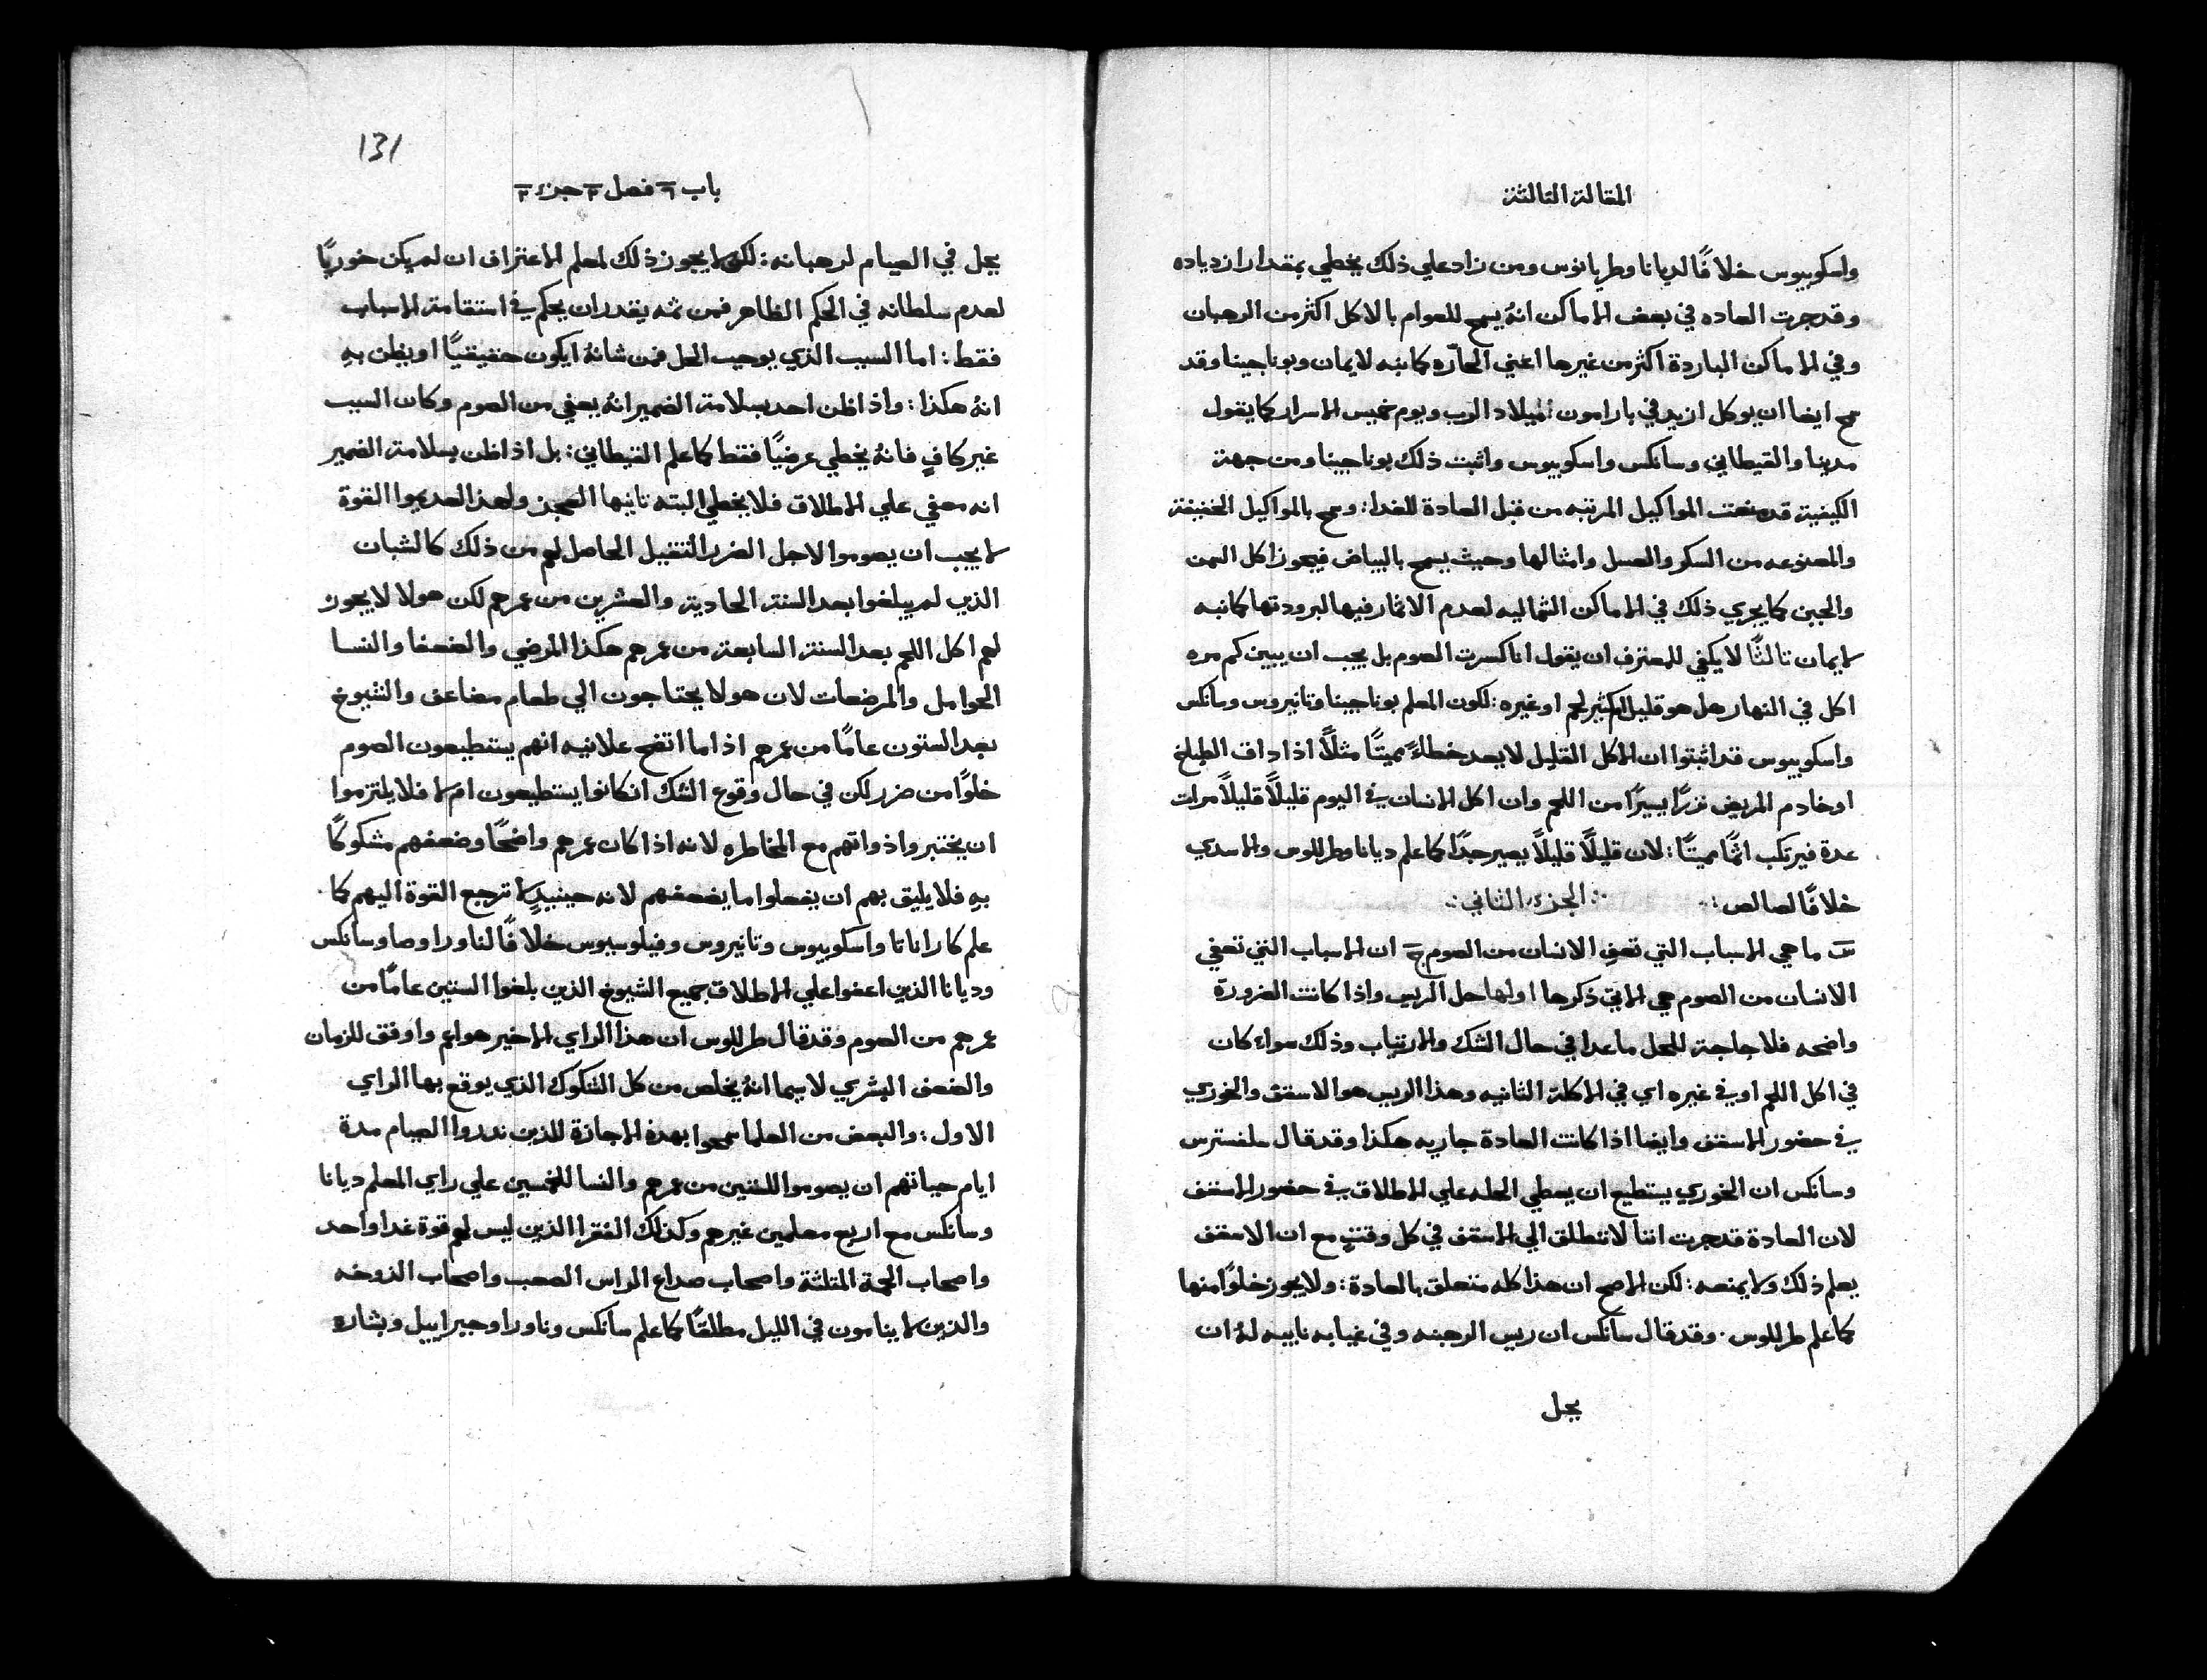 المقالة الثالثة
واسكوبيوس خلافًا لديانا وطربانوس ومن زاد علي ذلك يخطي بمقدار ازدياده
وقد جرت العاده في بعض الاماكن انهُ يسمح للعوام بالاكل اكثر من الرهبان
وفي الاماكن الباردة اكثر من غيرها اعني الحارّه كما نبه لايمان وبوناجينا وقد
سمح ايضا ان يوكل ازيد في بارامون الميلاد الرب ويوم خميس الاسرار كما يقول
مدينا والقيطاني وسانكس واسكوبيوس واثبت ذلك بوناجينا ومن جهة
الكيفية قد منعت المواكيل المرتبه من قبل العادة للغدا: وسمح بالمواكيل الخفيفة
والمصنوعه من السكر والعسل وامثالها وحيث يسمح بالبياض فيجوز اكل السمن
والجبن كما يجري ذلك في الاماكن الشماليه لعدم الاثمار فيها لبرودتها كما نبه
لايمان ثالثًا لا يكفي للمعترف ان يقول انا كسرت الصوم بل يجب ان يبين كم مره
اكل في النهار هل هو قليل ام كثير لحم او غيره: لكون المعلم بوناجينا وتانيروس وسانكس
واسكوبيوس قد اثبتوا ان الاكل القليل لا يعد خطاءً مميتًا مثلًا اذا داق الطباخ
او خادم المريض نزرًا يسيرًا من اللحم وان اكل الانسان في اليوم قليلًا قليلًا مرات
عدة فيرتكب اثمًا مميتًا: لان قليلًا قليلًا يصير جدًا كما علم ديانا وطرللوس والاسدي
خلافًا لصالص: الجزء الثاني
س ما هي الاسباب التي تعفي الانسان من الصوم ج ان الاسباب التي تعفي
الانسان من الصوم هي الاتي ذكرها اولها حل الريس واذا كانت الضرورة
واضحه فلا حاجة للحل ماعدا في حال الشك والارتياب وذلك سواء كان
في اكل اللحم او في غيره اي في الاكلة الثانيه وهذا الريس هو الاسقف والخوري
في حضور الاسقف وايضا اذا كانت العادة جاريه هكذا وقد قال سلفسترس
وسانكس ان الخوري يستطيع ان يعطي الحله علي الاطلاق في حضور الاسقف
لان العادة قد جرت اننا لا ننطلق الي الاسقف في كل وقتٍ مع ان الاسقف
يعلم ذلك ولا يمنعه: لكن الاصح ان هذا كله متعلق بالعادة: ولا يجوز خلوًا منها
كما علم طرللوس. وقد قال سانكس ان ريس الرهبنه وفي غيابه نايبه لهُ ان
يحل
131
باب ٦ فصل ٣ جزء ٢
يحل في الصيام لرهبانه: لكن لا يجوز ذلك لمعلم الاعتراف ان لم يكن خوريًا
لعدم سلطانه في الحكم الظاهر فمن ثمه يقدر ان يحكم في استقامة الاسباب
فقط: اما السبب الذي يوجب الحل فمن شانهُ ايكون حقيقيًا او يظن بهِ
انهُ هكذا: واذا ظن احد بسلامة الضمير انهُ يعفي من الصوم وكان السبب
غير كافٍ فانهُ يخطي عرضيًا فقط كما علم القيطاني: بل اذا ظن بسلامة الضمير
انه معفي علي الاطلاق فلا يخطي البته ثانيها العجز ولهذا العديموا القوة
لا يجب ان يصوموا لاجل الضرر الثقيل الحاصل لهم من ذلك كالشبان
الذين لم يبلغوا بعد السنة الحادية والعشرين من عمرهم لكن هولا لا يجوز
لهم اكل اللحم بعد السنة السابعة من عمرهم هكذا المرضي والضعفا والنسا
الحوامل والمرضعات لان هولا يحتاجون الي طعام مضاعف والشيوخ
بعد الستون عامًا من عمرهم اذا ما اتضح علانيه انهم يستطيعون الصوم
خلوًا من ضرر لكن في حال وقوع الشك ان كانوا يستطيعون ام لا فلا يلتزموا
ان يختبروا ذواتهم مع المخاطره لانه اذا كان عمرهم واضحًا وضعفهم مشكوكًا
بهِ فلا يليق بهم ان يفعلوا ما يضعفهم لانه حينيذٍ لا ترجع القوة اليهم كما
علم كاراناتا واسكوبيوس وتانيروس وفيلوسيوس خلافًا لناورا وصا وسانكس
وديانا الذين اعفوا علي الاطلاق جميع الشيوخ الذين بلغوا الستين عامًا من
عمرهم من الصوم وقد قال طرللوس ان هذا الراي الاخير هو اعم واوفق للزمان
والضعف البشري لا سيما انهُ يخلص من كل الشكوك الذي يوقع بها الراي
الاول: والبعض من العلما سمحوا بهذه الاجازة للذين نذروا الصيام مدة
ايام حياتهم ان يصوموا للستين من عمرهم والنسا للخمسين علي راي المعلم ديانا
وسانكس مع اربع معلمين غيرهم وكذلك الفقرا الذين ليس لهم قوة غدا واحد
واصحاب الحمة المثلثة واصحاب صداع الراس الصعب واصحاب الدوخه
والذين لا ينامون في الليل مطلقًا كما علم سانكس وناورا وجبراييل وبشاره